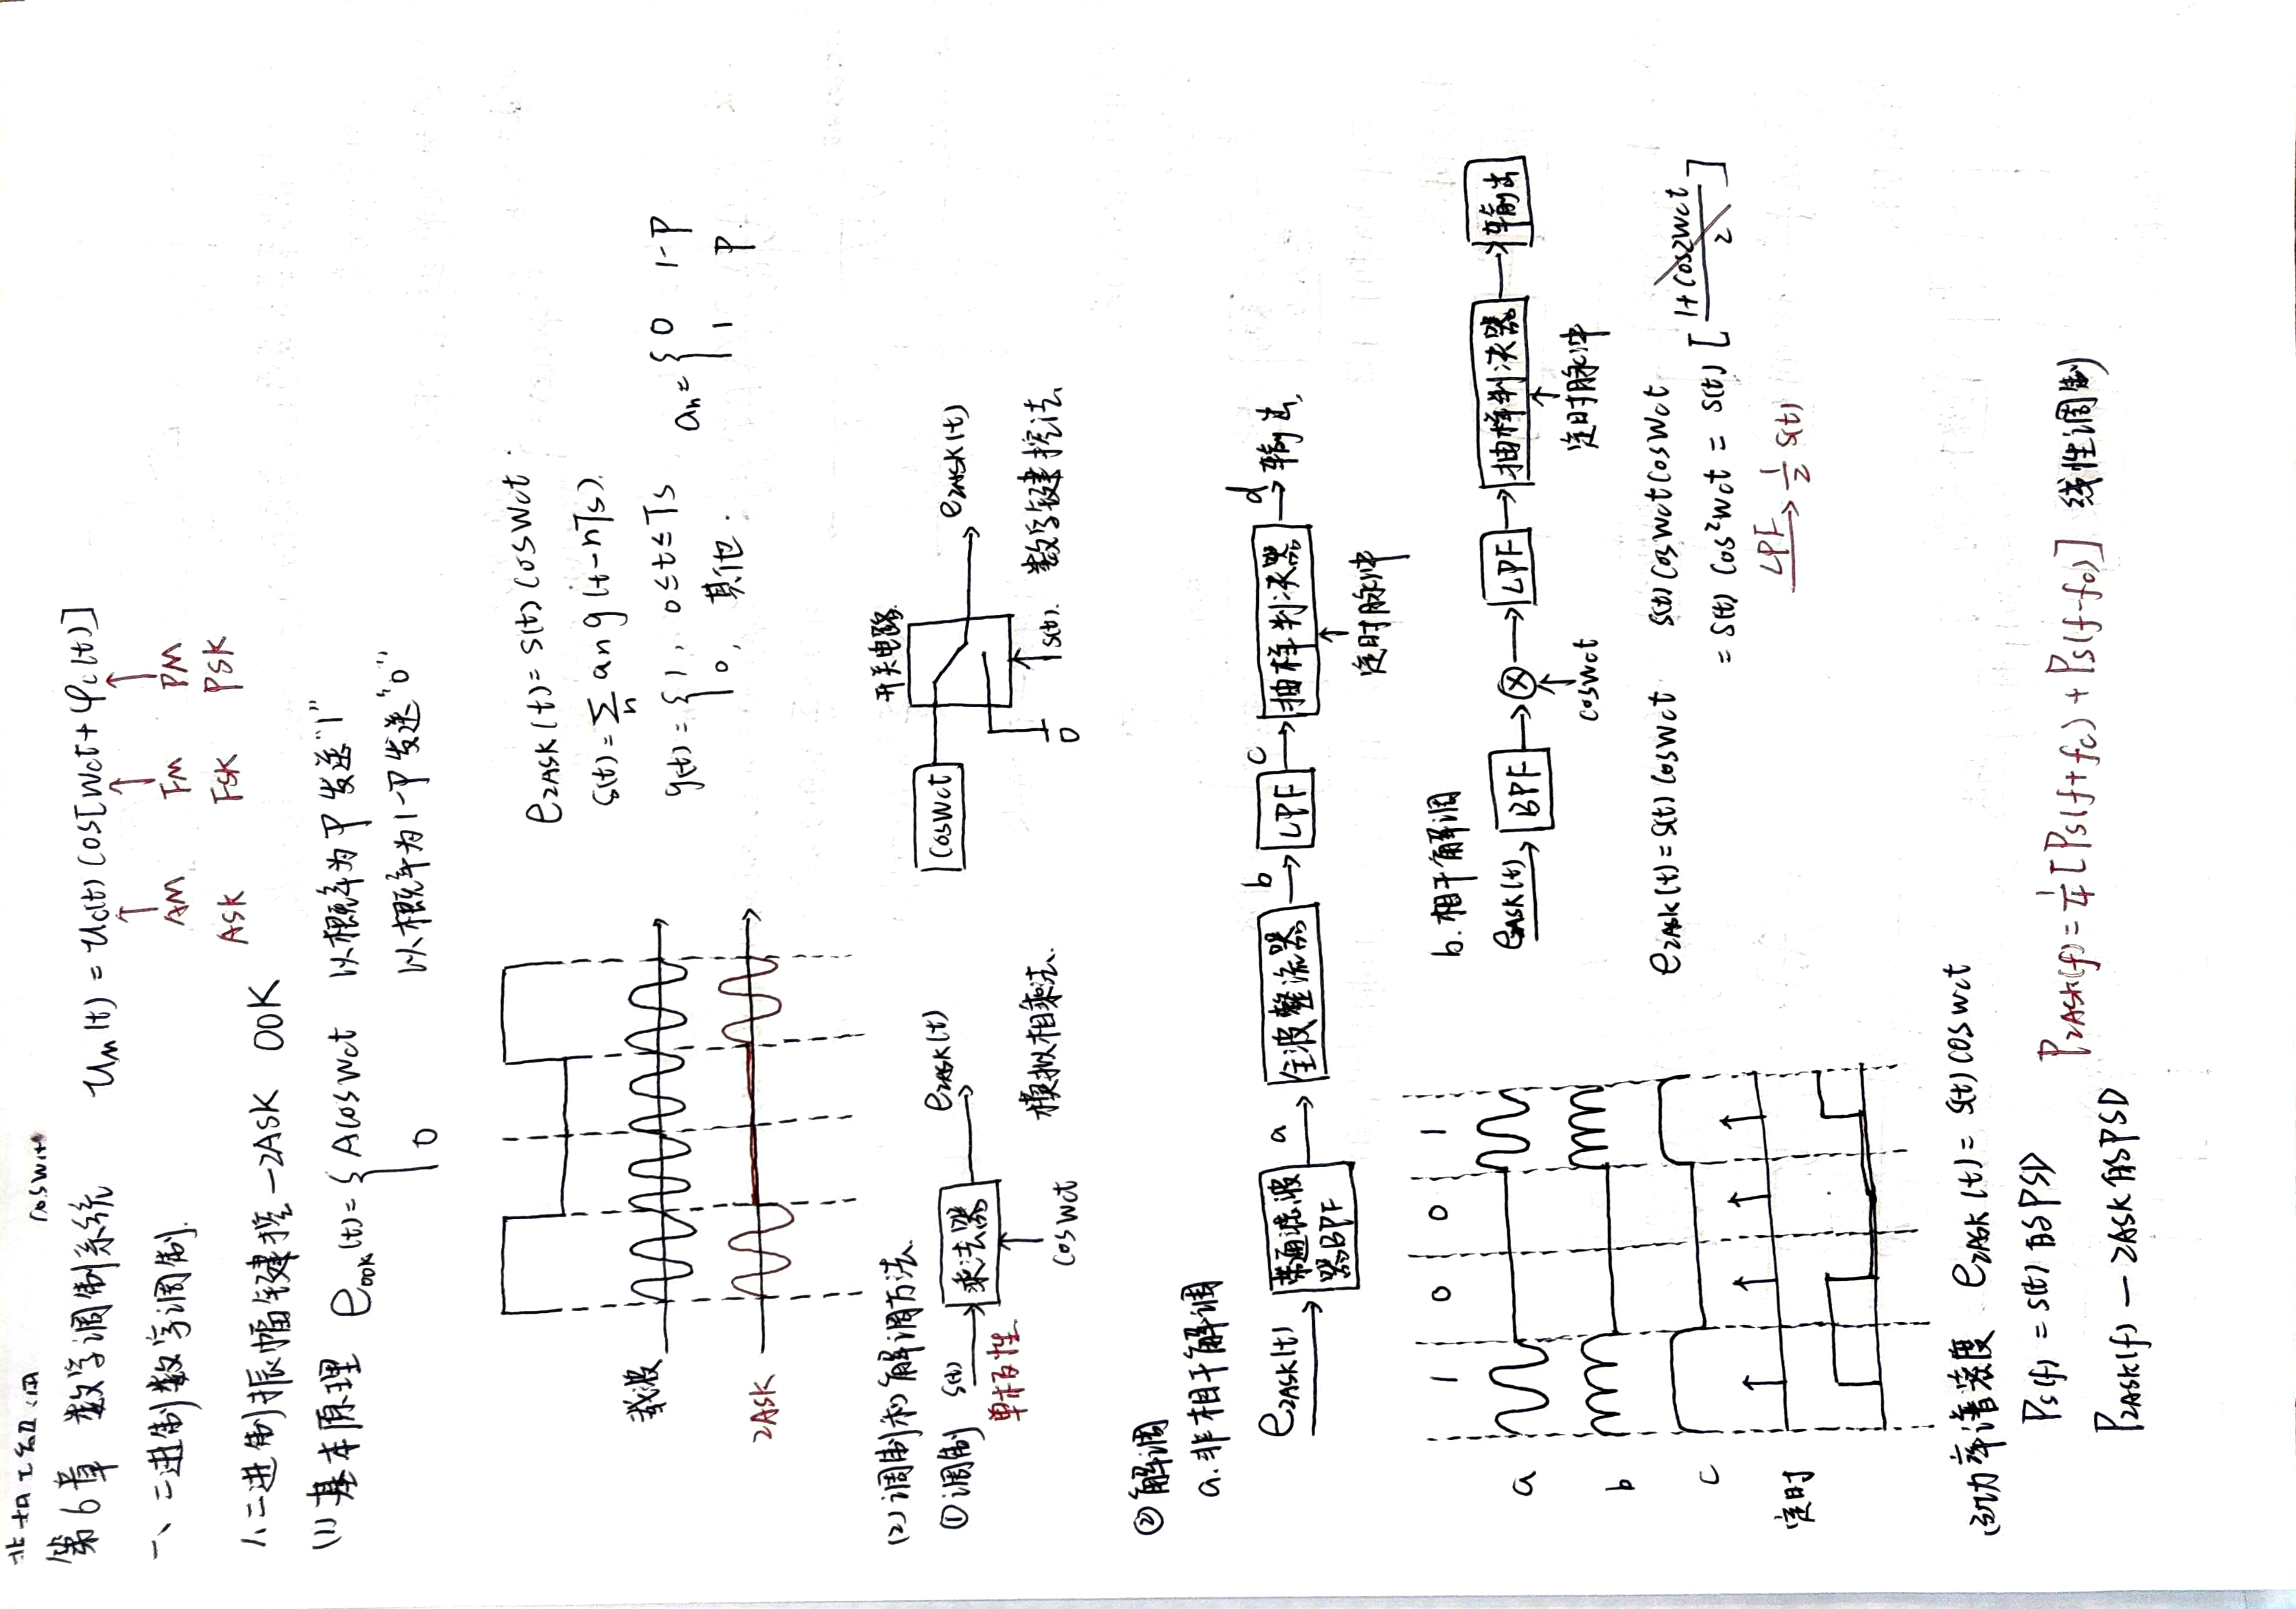 cosWct
第6章 数字调制系统 Um(t)=Uc(t)cos[Wct+φc(t)]
AM FM PM
ASK FSK PSK
一、二进制数字调制.
1、二进制振幅键控—2ASK OOK
(1)基本原理 eOOK(t)={ Acoswct 以概率为P发送"1"
0 以概率为1-P发送"0"
e2ASK(t)=S(t)cosWct.
S(t)=∑n an g(t-nTs).
g(t)={ 1, 0≤t≤Ts an={ 0 1-P
0, 其他. 1 P.
载波
2ASK
(2)调制和解调方法.
①调制 S(t) 乘法器 e2ASK(t)
单极性
cosWct
模拟相乘法.
开关电路
cosWct
e2ASK(t)
0
S(t).
数字键控法
②解调
a.非相干解调
e2ASK(t) 带通滤波器BPF a 全波整流器 b LPF c 抽样判决器 d 输出
定时脉冲
1 0 0 1
a
b
c
定时
b.相干解调
e2ASK(t) BPF ⊗ LPF 抽样判决器 输出
cosWct
定时脉冲
e2ASK(t)=S(t)cosWct S(t)cosWctcosWct
=S(t)cos²Wct=S(t)[(1+cos2Wct)/2]
LPF→ 1/2 S(t)
(3)功率谱密度 e2ASK(t)=S(t)cosWct
Ps(f)=S(t)的PSD
P2ASK(f)—2ASK的PSD
P2ASK(f)=1/4[Ps(f+fc)+Ps(f-fc)] 线性调制)